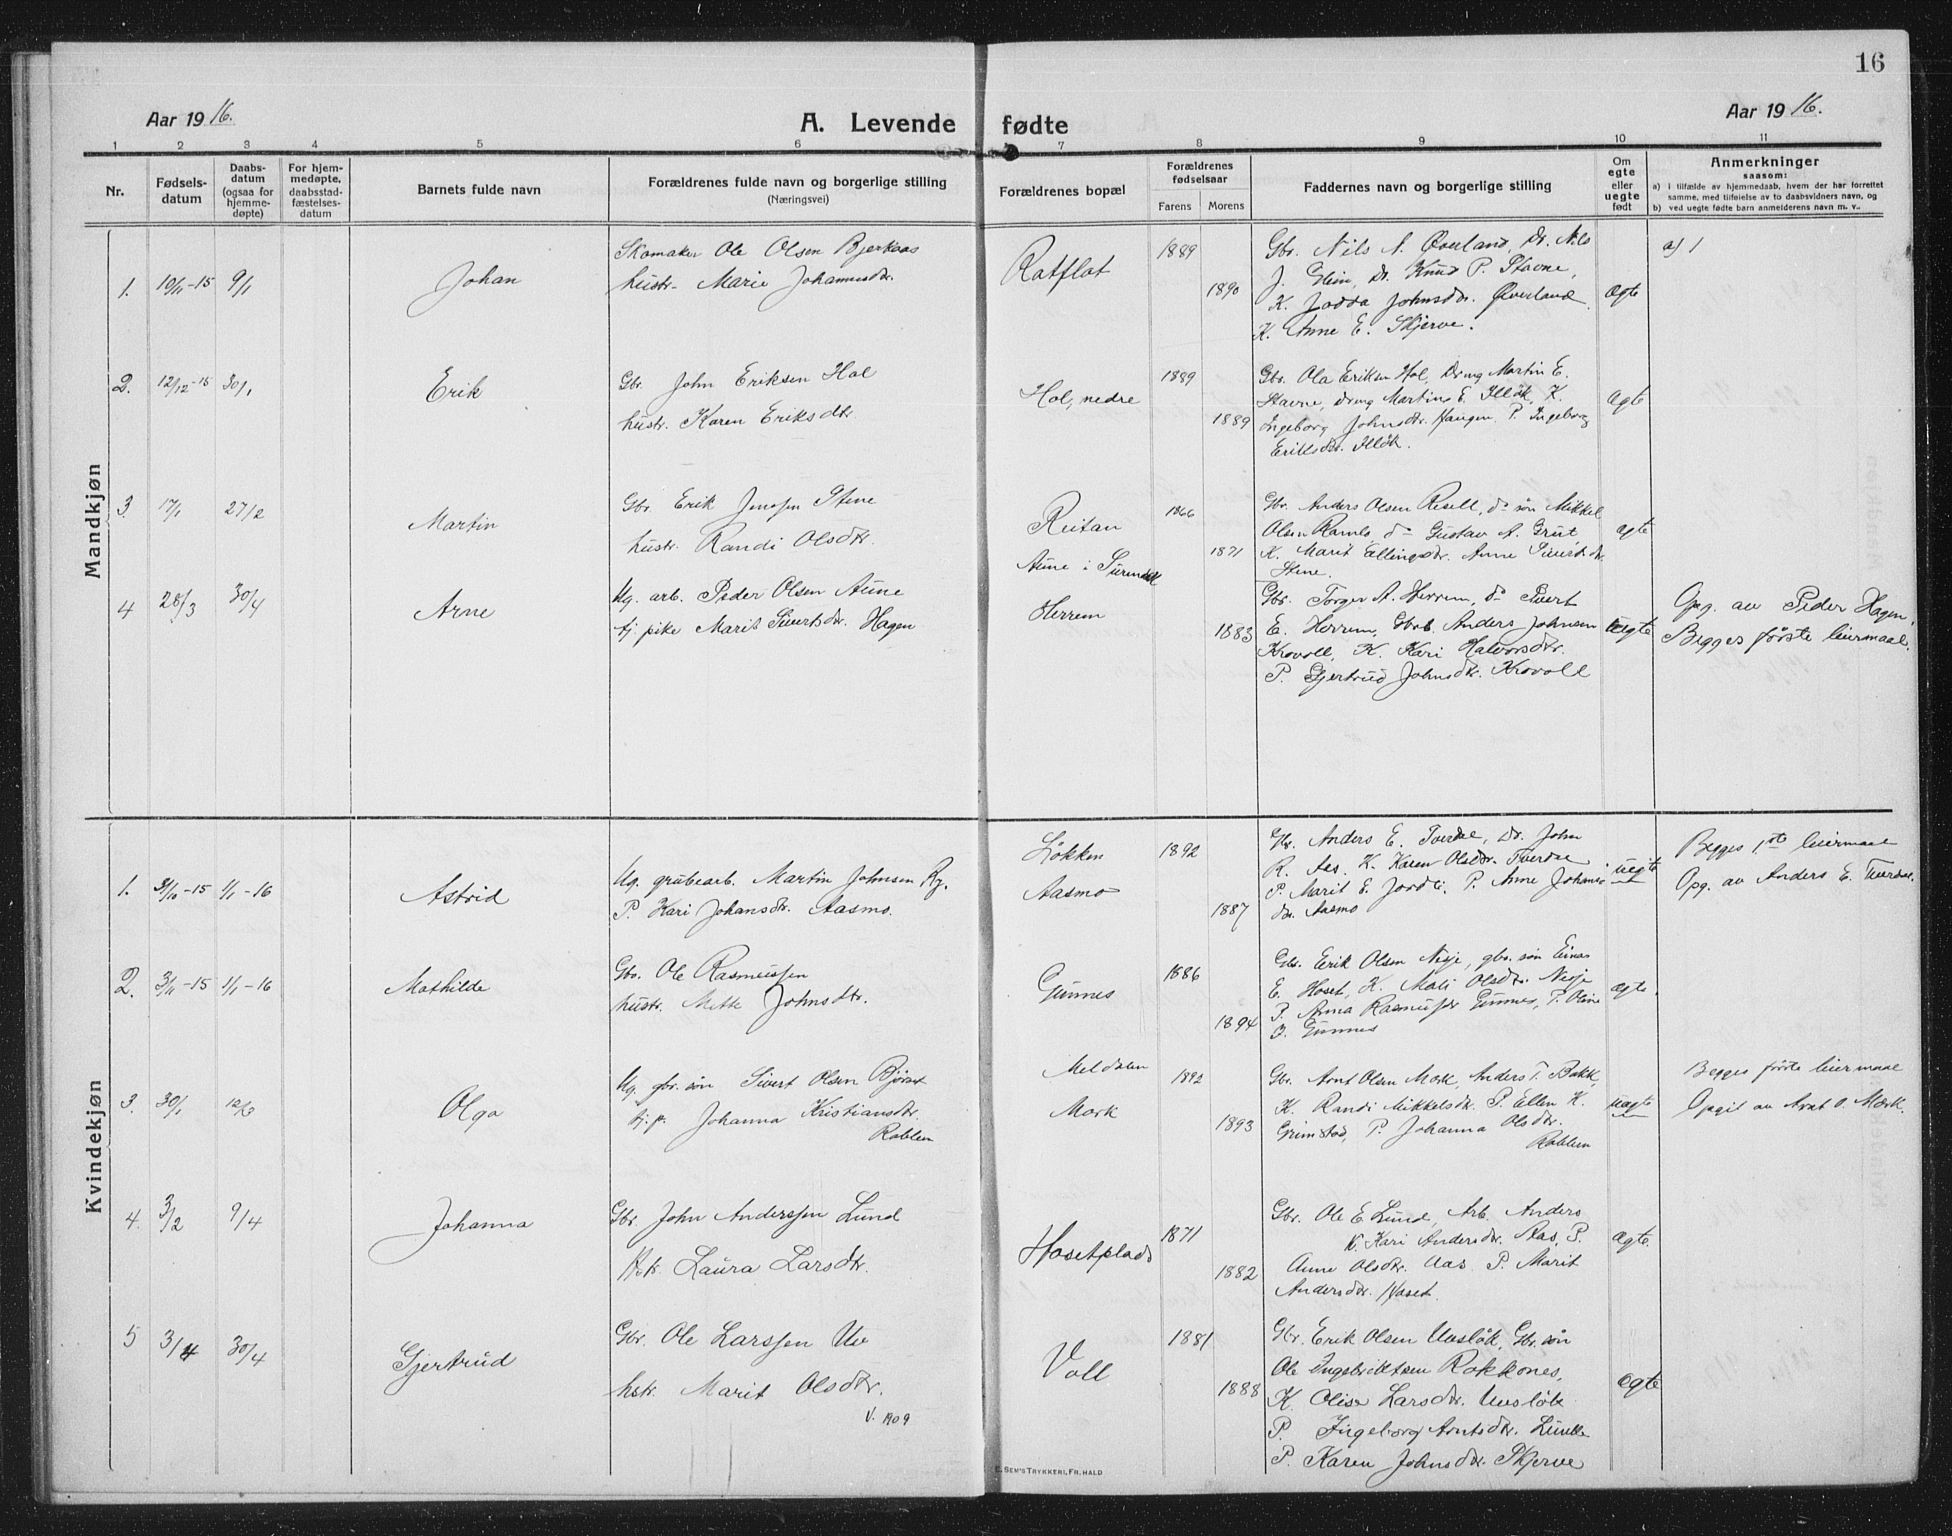 16
Aar 1916.
A. Levende fødte
Aar 1916.
1 2 3 4 5 6 7 8 9 10 11
Nr.
Fødsels-
datum
Daabs-
datum
(ogsaa for
hjemme-
døpte)
For hjem-
medøpte,
daabsstad-
fæstelses-
datum
Barnets fulde navn
Forældrenes fulde navn og borgerlige stilling
(Næringsvei)
Forældrenes bopæl
Forældrenes
fødselsaar
Farens Morens
Faddernes navn og borgerlige stilling
Om
egte
eller
uegte
født
Anmerkninger
saasom:
a) i tilfælde av hjemmedaab, hvem der har forrettet
samme, med tilføielse av to daabsvidners navn, og
b) ved uegte fødte barn anmelderens navn m. v..
Mandkjøn
1. 10/11-15 9/1 Johan
Skomaker Ole Olsen Bjerkaas
hustr. Marie Johannesdtr.
Ratflot
1889
1890
Gbr. Nils N. Øverland, Dr. Nils
J. Glim, Dr. Knud P. Stavne,
K. Jodda Johnsdtr. Øverland
K. Anne E. Skjerve.
ægte
a) 1
2. 12/12-15 30/1 Erik
Gbr. John Eriksen Hol
hustr. Karen Eriksdtr.
Hol, nedre
1889
1889
Gbr. Ola Eriksen Hol, Dreng Martin E.
Stavne, Dreng Martinus E. Illøk, K.
Ingeborg Johnsdtr. Haugen P. Ingeborg
Eriksdtr. Illøk.
ægte
3. 17/1 27/2 Martin
Gbr. Erik Jensen Stene
hustr. Randi Olsdtr.
Reitan
1866
1871
Gbr. Anders Olsen Resell, do søn Mikkel
Olsen Ramlo, do Gustav A. Grut
K. Marit Ellingsdtr. Anne Sivertsdtr.
Stene.
ægte
4 28/3 30/4 Arne
Ug. arb. Peder Olsen Aune
tj. pike Marit Sivertsdtr. Hagen
Aune i Surendal
Herrem
1883
Gbr. Torger A. Herrem, do Sivert
E. Herrem, Gbrb. Anders Johnsen
Krovoll, K. Kari Halvorsdtr.
P. Gjertrud Johnsdtr. Krovoll
uegte
Opg. av Peder Hagen.
Begges første leiermaal.
Kvindekjøn
1. 31/10-15 1/1-16 Astrid
Ug. grubearb. Martin Johnsen Ry.
P. Kari Johansdtr. Aasmo.
Løkken
Aasmo
1892
1887
Gbr. Anders E. Tverdal, Dr. John
R. Aas. K. Karen Olsdtr. Tverdal
P. Marit E. Jordli, P. Anne Johans-
dtr. Aasmo
uegte
Begges 1ste leiermaal
Opg. av Anders E. Tverdal.
2. 3/11-15 1/1-16 Mathilde
Gbr. Ole Rasmussen
hustr. Mette Johnsdtr.
Gunnes
1886
1894
Gbr. Erik Olsen Nisje, gbr. søn Einar
E. Hoset, K. Mali Olsdtr. Nisje
P. Anna Rasmusdtr. Gunnes, P. Oline
J. Gunnes
ægte.
3. 30/1 12/3 Olga
Ug. gbr. søn Sivert Olsen Bjøraa
tj. p. Johanna Kristiansdtr.
Roblen
Meldalen
Mork
1892
1893
Gbr. Arnt Olsen Mork, Anders T. Bakk,
K. Randi Mikkelsdtr. P. Ellen K.
Grimstad, P. Johanna Olsdtr.
Roblen
uægte
Begges første leiermaal
Opgit av Arnt O. Mork.
4. 3/2 9/4 Johanna
Gbr. John Anderssen Lund
Hstr. Laura Larsdtr.
Hosetplads
1871
1882
Gbr. Ole E. Lund, Arb. Anders
K. Kari Andersdtr. Aas, P.
Anne Olsdtr. Aas P. Marit
Andersdtr. Hoset.
ægte.
5 3/4 30/4 Gjertrud
Gbr. Ole Larssen Uv
hstr. Marit Olsdtr.
V. 1909
Voll
1881
1888
Gbr. Erik Olsen Uvsløk, Gbr. søn
Ole Ingebriktsen Rokkones,
K. Olise Larsdtr. Uvsløk
P. Ingeborg Arntsdtr.
P. Karen Johnsdtr. Skjerve
ægte
E. SEM'S TRYKKERI, FR.HALD